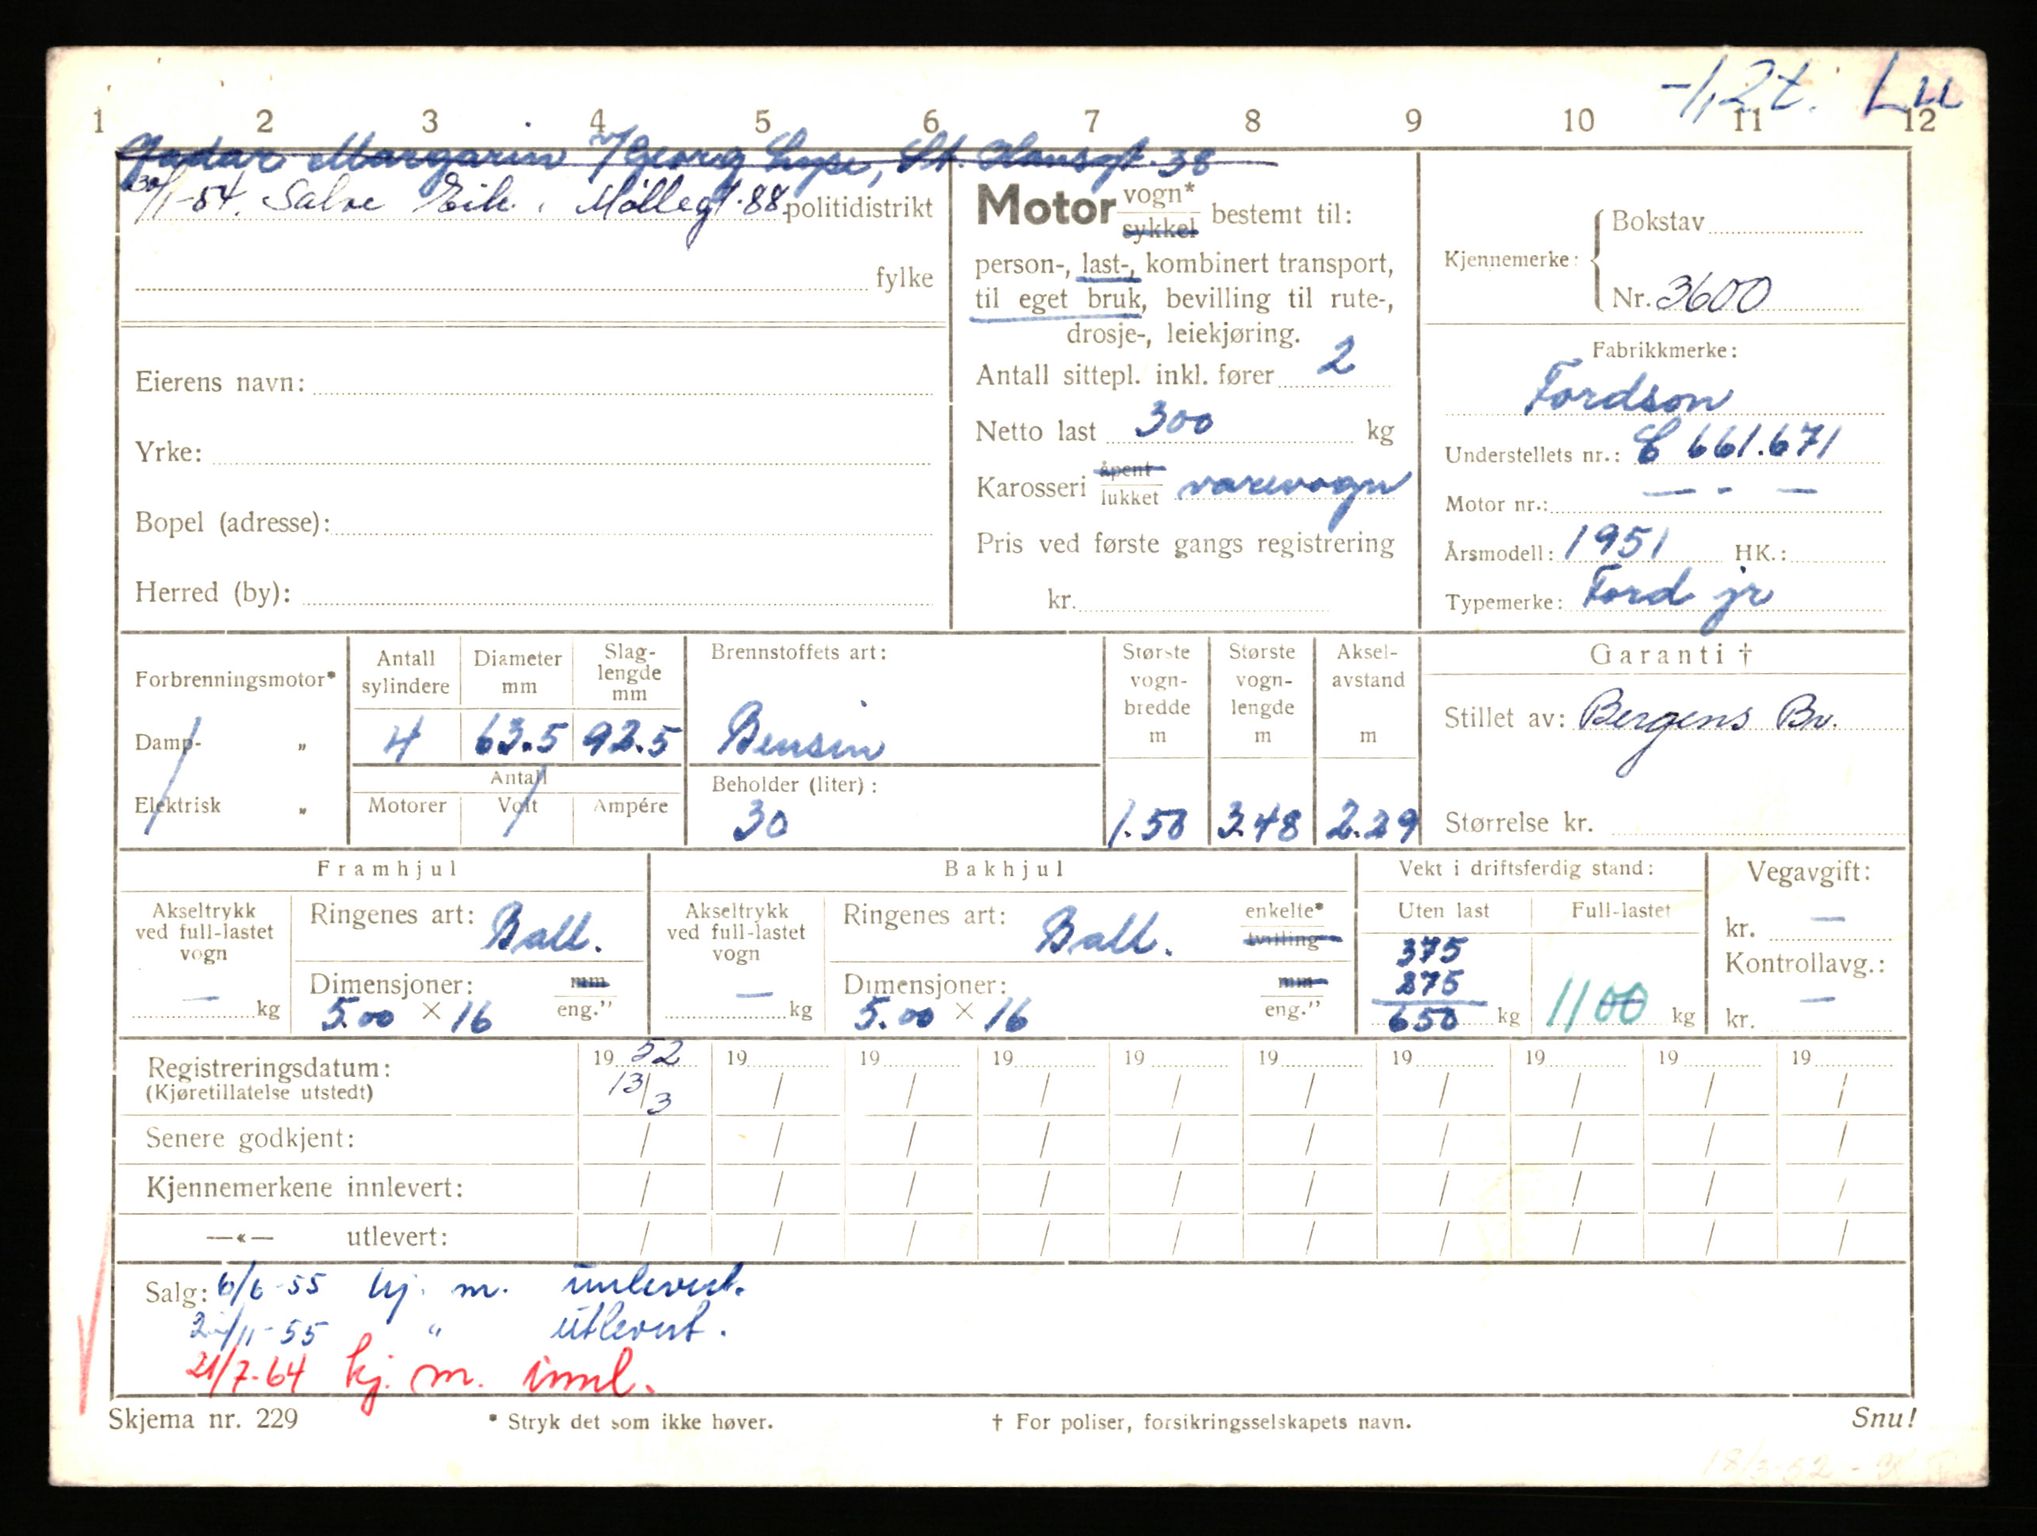 -1,2 t. Lu
1 2 3 4 5 6 7 8 9 10 11 12
Jadar Margarin v/ Georg Lyse, St. Hansgt. 38
30/1-54. Salve Eik. Møllegt. 88. politidistrikt
fylke
Eierens navn:
Yrke:
Bopel (adresse):
Herred (by):
Motor vogn* sykkel bestemt til:
person-, last-, kombinert transport,
til eget bruk, bevilling til rute-,
drosje-, leiekjøring.
Antall sittepl. inkl. fører 2
Netto last 300 kg
Karosseri åpent lukket varevogn
Pris ved første gangs registrering
kr.
Kjennemerke: Bokstav
Nr. 3600
Fabrikkmerke:
Fordson
Understellets nr.: C 661.671
Motor nr.: — - —
Årsmodell: 1951 HK.:
Typemerke: Ford jr
Forbrenningsmotor*
Damp- „
Elektrisk „
Antall sylindere 4
Diameter mm 63.5
Slag-lengde mm 92.5
Antall
Motorer Volt Ampére
Brennstoffets art:
Bensin
Beholder (liter):
30
Største vogn-bredde m 1.50
Største vogn-lengde m 3.48
Aksel-avstand m 2.29
Garanti †
Stillet av: Bergens Bv.
Størrelse kr.
Framhjul
Akseltrykk ved full-lastet vogn — kg
Ringenes art: Ball.
Dimensjoner: mm
5.00 × 16 eng."
Bakhjul
Akseltrykk ved full-lastet vogn — kg
Ringenes art: Ball. enkelte* tvilling
Dimensjoner: mm
5.00 × 16 eng."
Vekt i driftsferdig stand:
Uten last Full-lastet
375
275
650 kg 1100 kg
Vegavgift:
kr. —
Kontrollavg.:
kr. —
Registreringsdatum: 19 52 19 19 19 19 19 19 19 19 19
(Kjøretillatelse utstedt) 13/3 / / / / / / / / /
Senere godkjent: / / / / / / / / / /
Kjennemerkene innlevert: / / / / / / / / / /
—«— utlevert: / / / / / / / / / /
Salg: 6/6-55 kj. m. innlevert.
/11-55 " utlevert.
21/7-64 kj. m. innl.
Skjema nr. 229 * Stryk det som ikke høver. † For poliser, forsikringsselskapets navn. Snu!